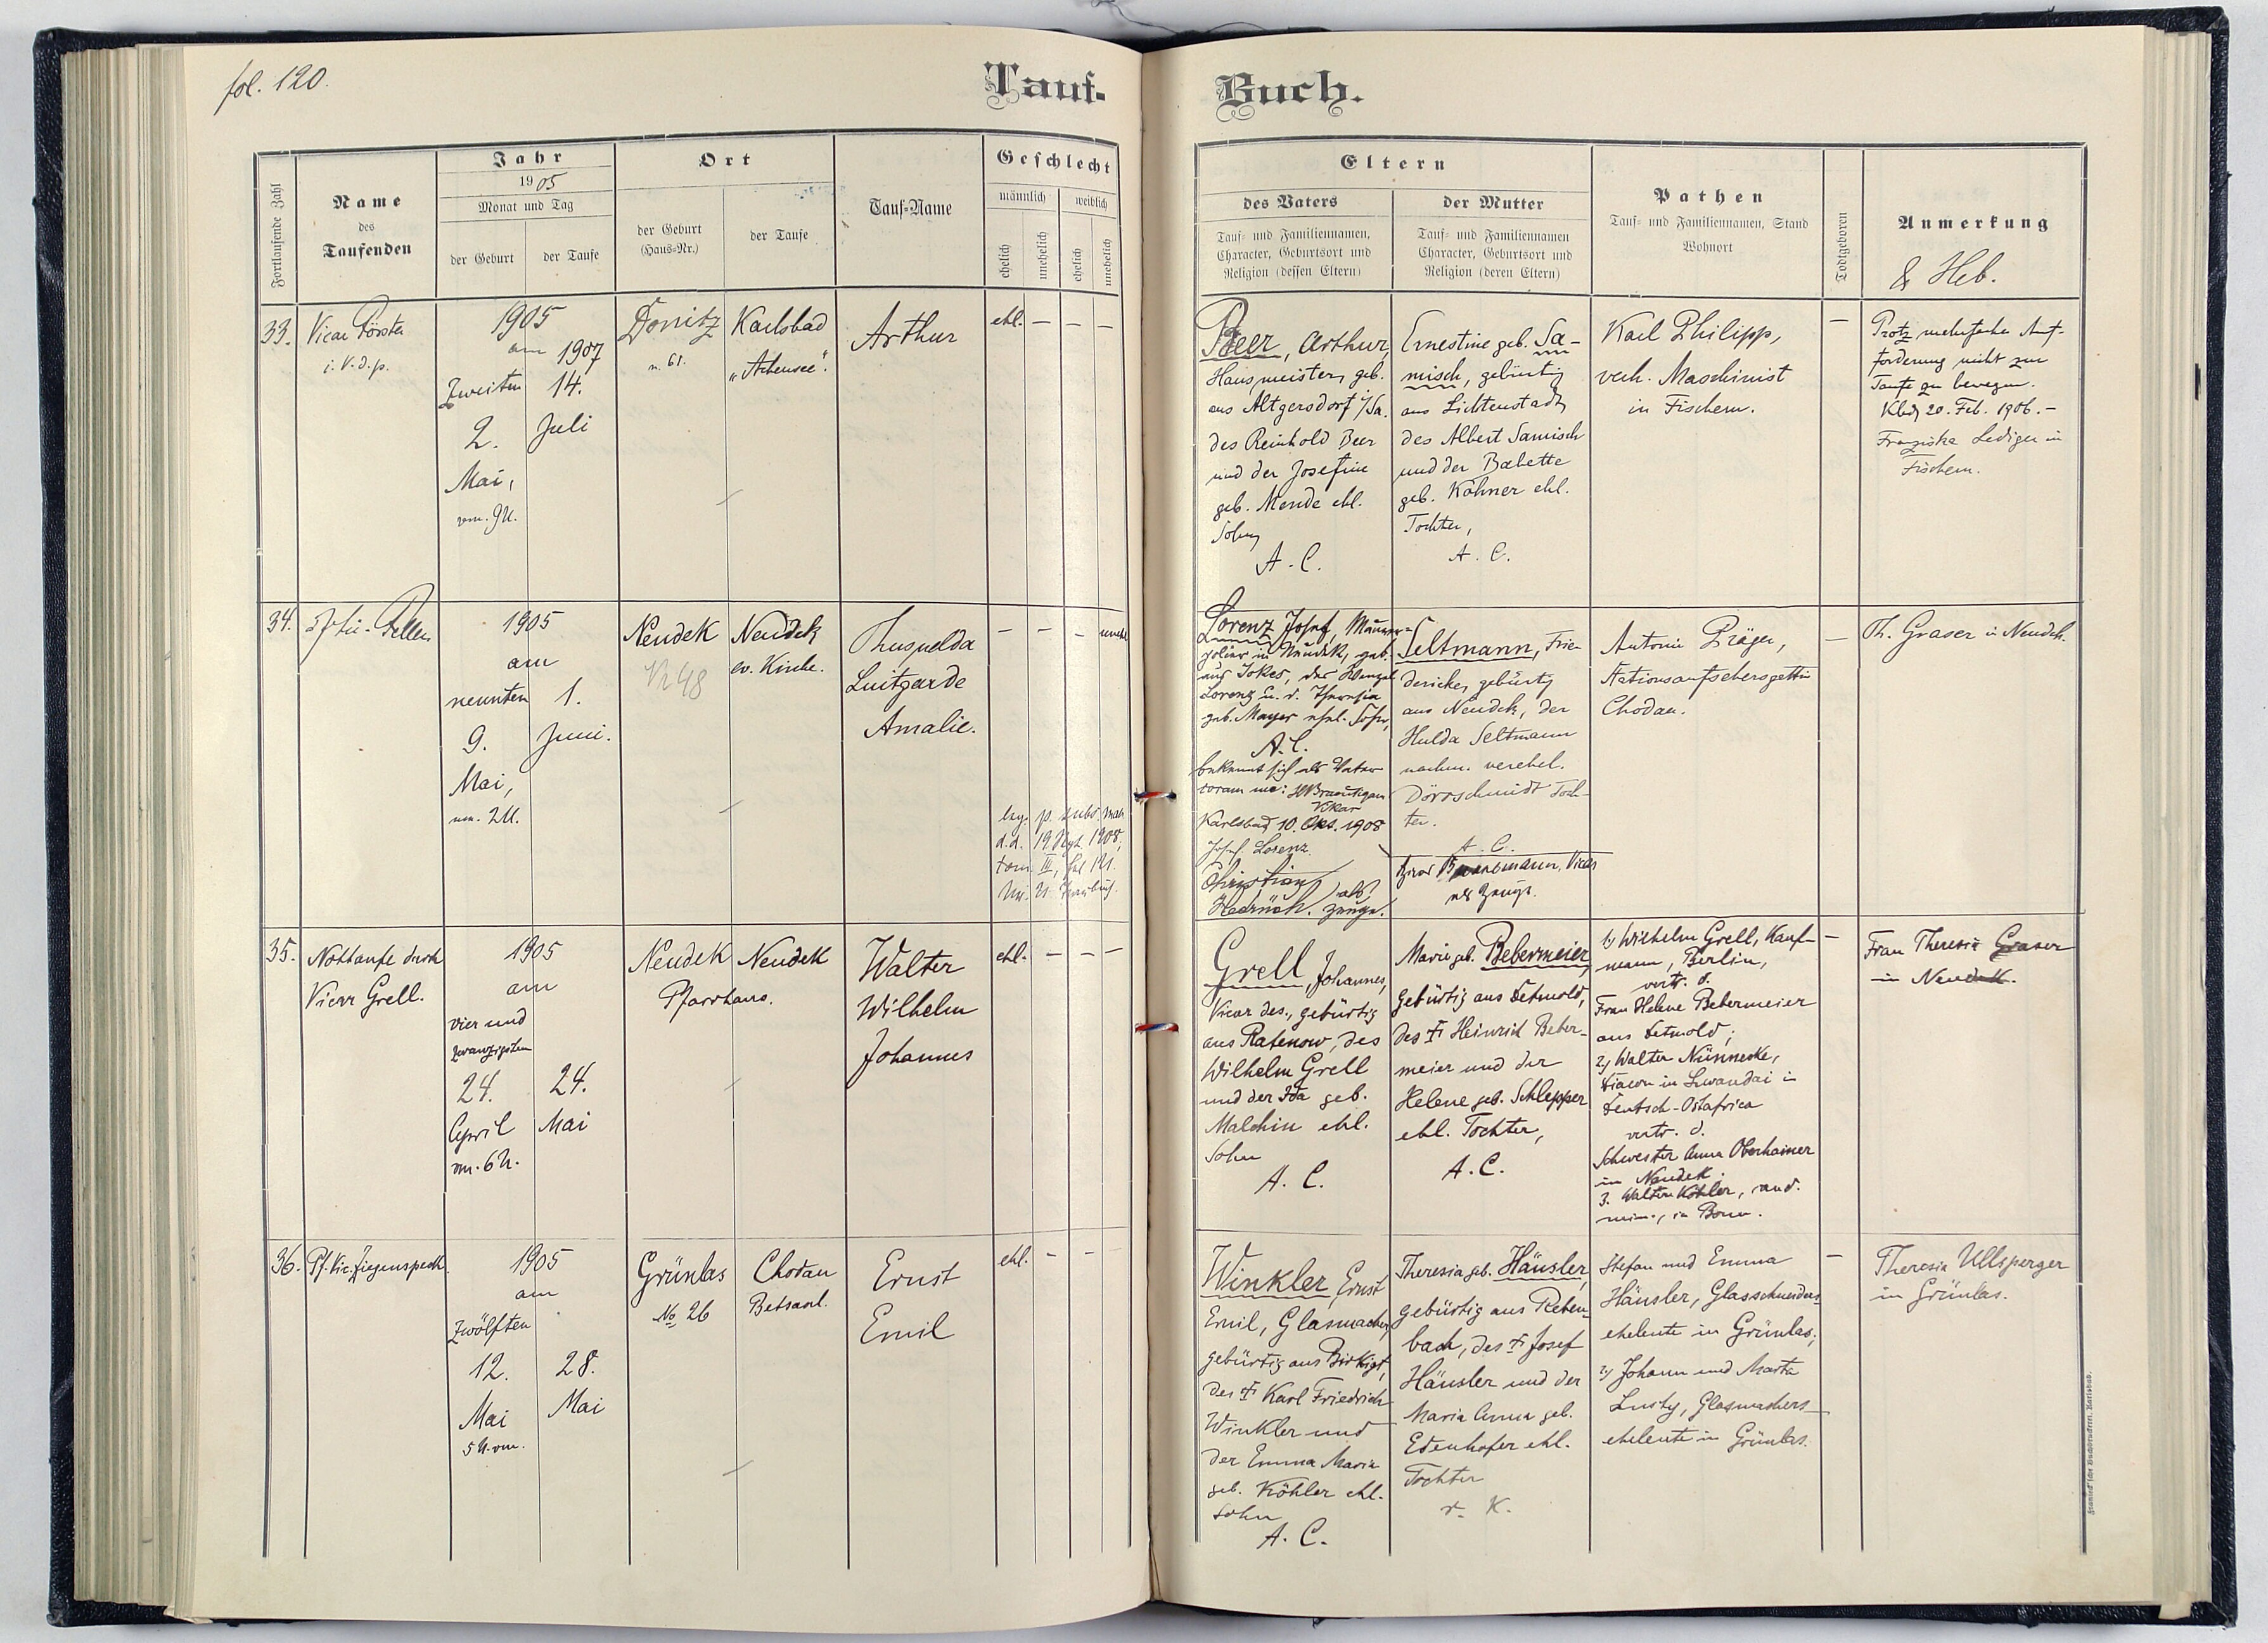 fol. 120.
Tauf-
Buch.
Fortlaufende Zahl
Name
des
Taufenden
Jahr
1905
Monat und Tag
der Geburt
der Taufe
Ort
der Geburt
(Haus-Nr.)
der Taufe
Tauf-Name
Geschlecht
männlich
weiblich
ehelich
unehelich
ehelich
unehelich
Eltern
des Vaters
Tauf- und Familiennamen,
Character, Geburtsort und
Religion (dessen Eltern)
der Mutter
Tauf- und Familiennamen
Character, Geburtsort und
Religion (deren Eltern)
Pathen
Tauf- und Familiennamen, Stand
Wohnort
Todtgeboren
Anmerkung
& Heb.
33.
Vicar Förster
i. V. d. p.
1905
am
Zweiten
2.
Mai,
vm. 9 U.
1907
14.
Juli
Donitz
n. 61.
Karlsbad
"Achensee".
Arthur
ehl. — — —
Beer, Arthur,
Hausmeister, geb.
aus Altgersdorf i/Sa.
des Reinhold Beer
und der Josefine
geb. Mende ehl.
Sohn
A. C.
Ernestine geb. Sa-
misch, gebürtig
aus Lichtenstadt,
des Albert Samisch
und der Babette
geb. Kohner ehl.
Tochter,
A. C.
Karl Philipp,
verh. Maschinist
in Fischern.
—
Trotz mehrfacher Auf-
forderung nicht zur
Taufe zu bewegen.
20. Feb. 1906. —
Franziska Lediger in
Fischern.
34.
1905
am
neunten
9.
Mai,
nm. 2 U.
1.
Juni.
Neudek
Nr 48
Neudek
ev. Kirche.
Thusnelda
Luitgarde
Amalie.
— — — unehl.
leg. p. subs. mat.
d. d. 19 Sept 1908,
tom. III, fol 121.
Lorenz Josef, Maurer-
polier in Neudek, geb.
aus Jokes, des Wenzel
Lorenz u. d. Theresia
geb. Mayer ehel. Sohn,
A. C.
bekennt sich als Vater
coram me: Braeutigam
Vikar
Karlsbad 10. Okt. 1908
Josef Lorenz.
Christian
als
Zeuge.
Seltmann, Frie-
dericke, gebürtig
aus Neudek, der
Hulda Seltmann
nachm. verehel.
Dörrschmidt Toch-
ter.
A. C.
Vicar
als Zeuge.
Antonie Präger,
Stationsaufsehersgattin
Chodau.
—
Th. Graser in Neudek.
35.
Nottaufe durch
Vicar Grell.
1905
am
vier und
zwanzigsten
24.
April
vm. 6 U.
24.
Mai
Neudek
Neudek
Pfarrhaus.
Walter
Wilhelm
Johannes
ehl. — — —
Grell, Johannes,
Vicar des., gebürtig
aus Ratenow, des
Wilhelm Grell
und der Ida geb.
Malchin ehl.
Sohn
A. C.
Marie geb. Bebermeier
gebürtig aus Detmold,
des † Heinrich Beber-
meier und der
Helene geb. Schlepper
ehl. Tochter,
A. C.
1) Wilhelm Grell, Kauf-
mann, Berlin,
vertr. d.
Frau Helene Bebermeier
aus Detmold;
2) Walter Nünnecke,
Diacon in Lwandai in
Deutsch-Ostafrica
vertr. d.
Schwester Anna Oberhainer
in Neudek
3. Walter Köhler, cand.
min., in Bonn.
—
Frau Theresia Graser
in Neudek.
36.
Pf. Vic. Ziegenspeck
1905
am
Zwölften
12.
Mai
5 U. vm.
28.
Mai
Grünlas
No 26
Chodau
Betsaal.
Ernst
Emil
ehl. — — —
Winkler, Ernst
Emil, Glasmacher,
gebürtig aus Birkigt,
des † Karl Friedrich
Winkler und
der Emma Maria
geb. Köhler ehl.
Sohn
A. C.
Theresia geb. Häusler,
gebürtig aus Reben-
bach, des † Josef
Häusler und der
Maria Anna geb.
Edenhofer ehl.
Tochter
r. K.
Stefan und Emma
Häusler, Glasschneiders-
eheleute in Grünlas;
2) Johann und Marta
Lusty, Glasmachers-
eheleute in Grünlas.
—
Theresia Ullsperger
in Grünlas.